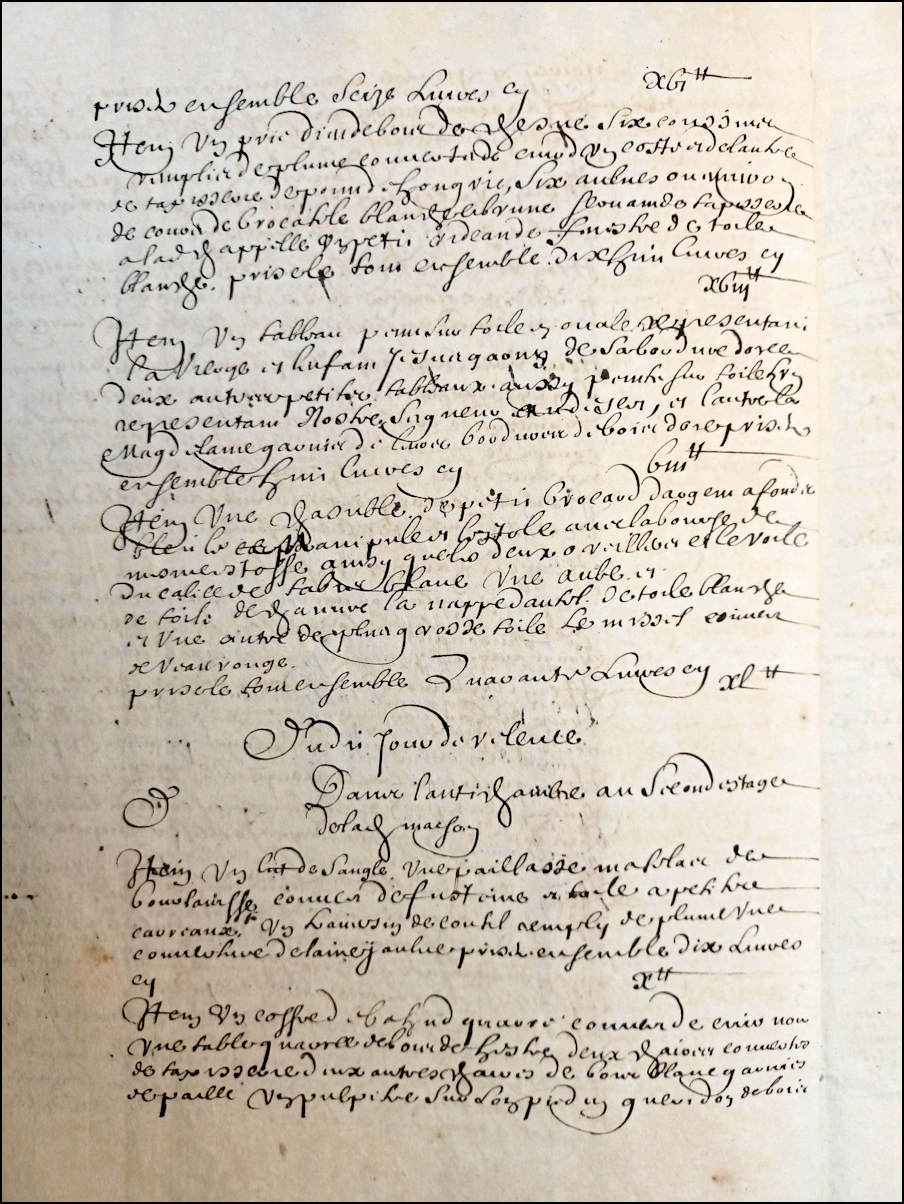 prisés ensemble Seize Livres cy xbi tt
Item Un prie dieu de bois de chesne Six coussins
remplis de plume couverts de d'un costé et de l'autre
de tapisserie de poinct d'hongrie, Six aulnes ou environ
de cours de brocatelle blanche et brune servant de tapisserie
a lad chappelle Un petit rideau de fenestre de toile
blanche. prisé le tout ensemble dix huit Livres cy
xbiii tt
Item Un tableau peint sur toile en ovale representant
la Vierge et l'enfant Jesus garny de sa bordure dorée
deux autres petits tableaux aussy peints sur toile l'un
representant Nostre Seigneur et l'autre la
Magdelaine garnis de leurs bordures de bois doré prisés
ensemble huit livres cy biii tt
Item Une chasuble de petit brocard d'argent a fond
bleu le manipule et l'estole avec la bourse de
mesme estoffe ainsy que les deux oreilliers et le voile
du calice de tabis blanc Une aube et
de toile de chanvre la nappe d'autel de toile blanche
et Une autre de plus grosse toile Le missel couvert
de veau rouge.
prisé le tout ensemble Quarante Livres cy xl tt
Dudit Jour de relevée
D Dans l'antichambre au Second estage
de lad maison
Item Un lict de Sangle Une paillasse matelas de
bourlanisse couvert de futaine et toile a petits
carreaux Un traversin de coutil remply de plume Une
couverture de laine jaulne prisés ensemble dix Livres
cy x tt
Item Un coffre de bahud quarré couvert de cuir noir
Une table quarrée de bois de hestre deux chaises couvertes
de tapisserie deux autres chaises de bois blanc garnies
de paille Un pulpitre Sur Son pied un gueridon de bois